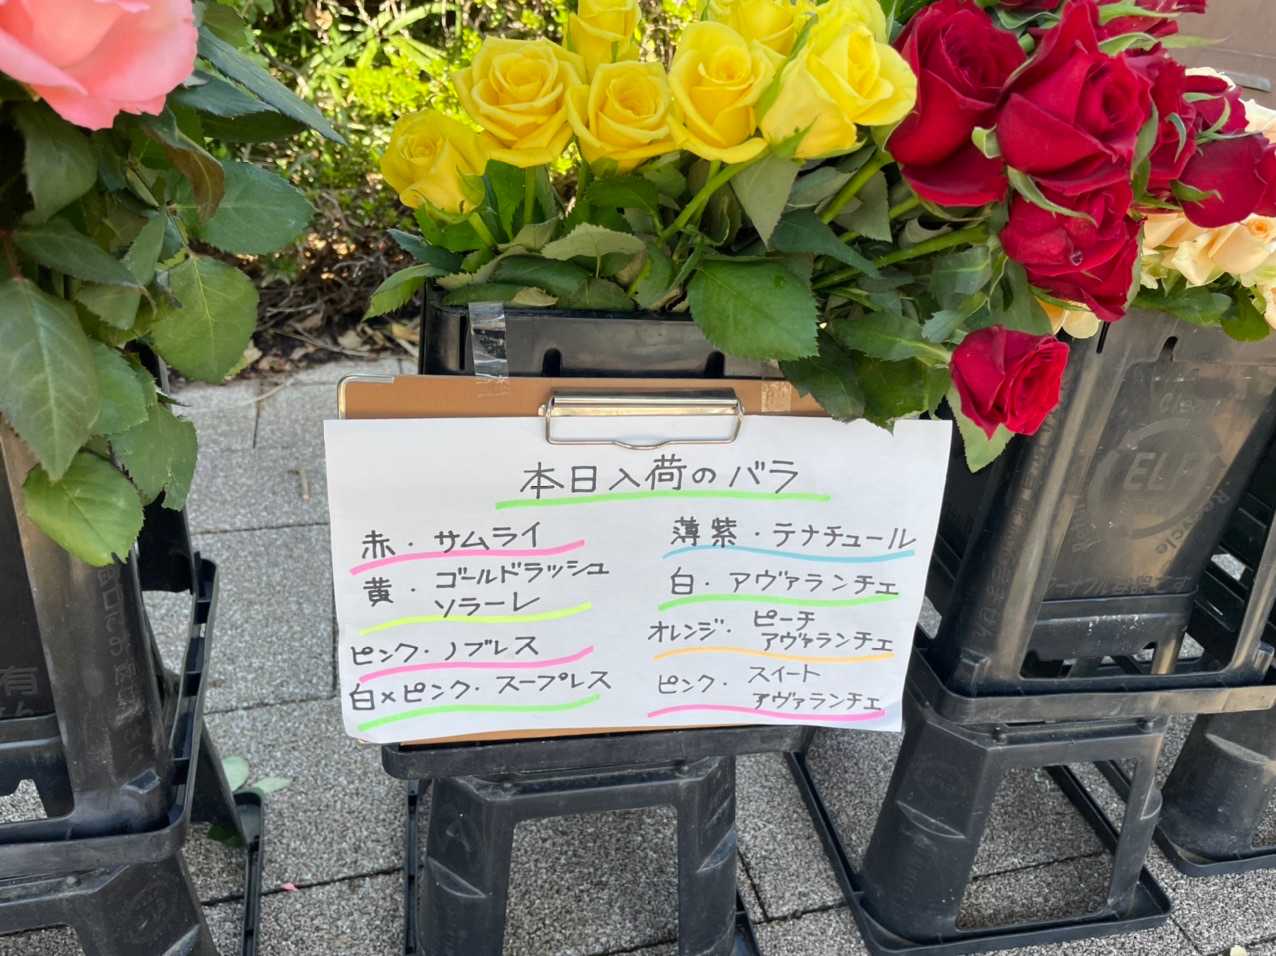 本日入荷のバラ
赤・サムライ
黄・ゴールドラッシュ
ソラーレ
ピンク・ノブレス
白×ピンク・スープレス
薄紫・テナチュール
白・アヴァランチェ
オレンジ・ピーチ
アヴァランチェ
ピンク・スイート
アヴァランチェ
ELF